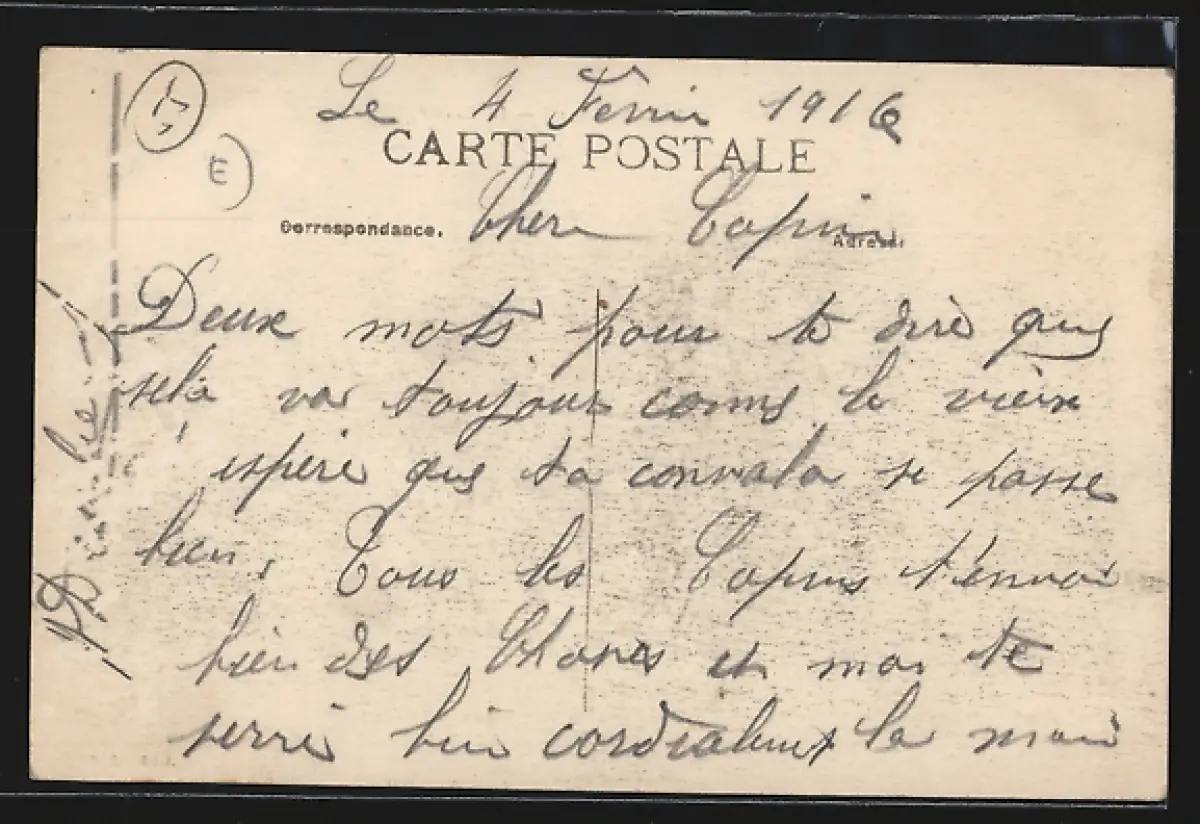 Le 4 Fevrier 1916
CARTE POSTALE
Correspondance. Cher Copin
Adresse
Deux mots pour te dire que
sela va toujour comme le vieux
espère que ta convala se passe
bien, Tous les Copins t'envoi
bien des Choses et moi te
serre bien cordialement la main
E